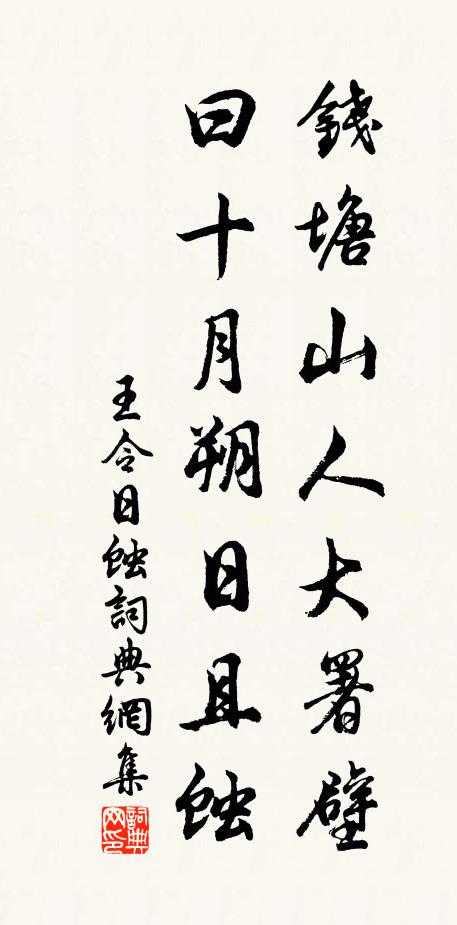 錢塘山人大署壁
曰十月朔日且蝕
王令日蝕詞典網集
詞典网印